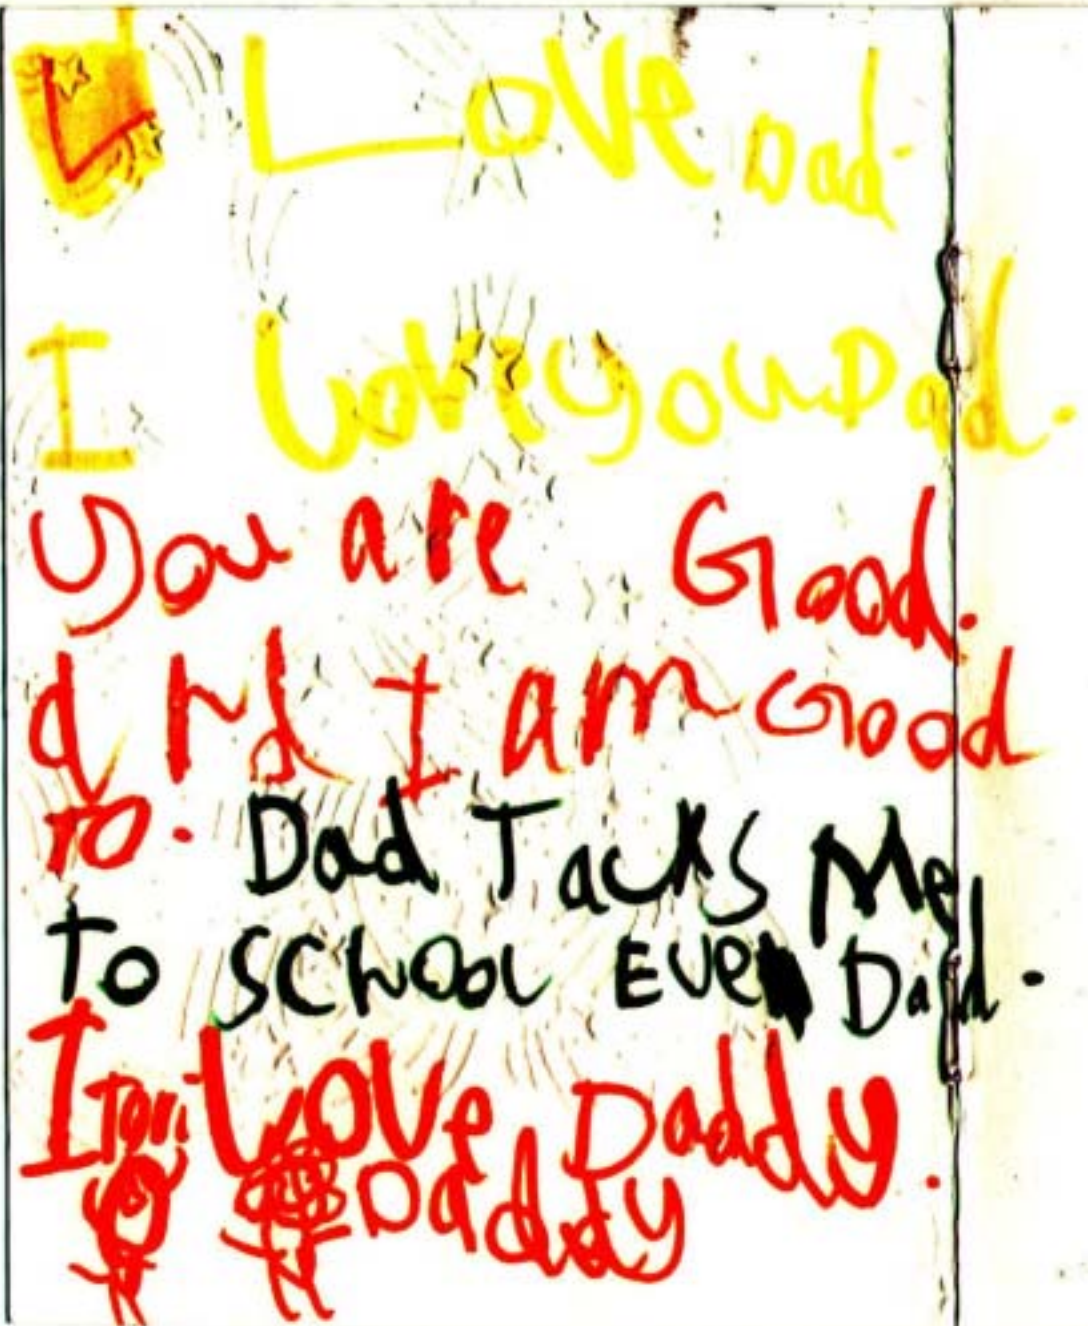 I Love Dad.
I Love you Dad.
you are Good.
and I am Good
TO. Dad Tacks Me
To SCHool Ever Dad.
I Love Daddy.
Tori Daddy